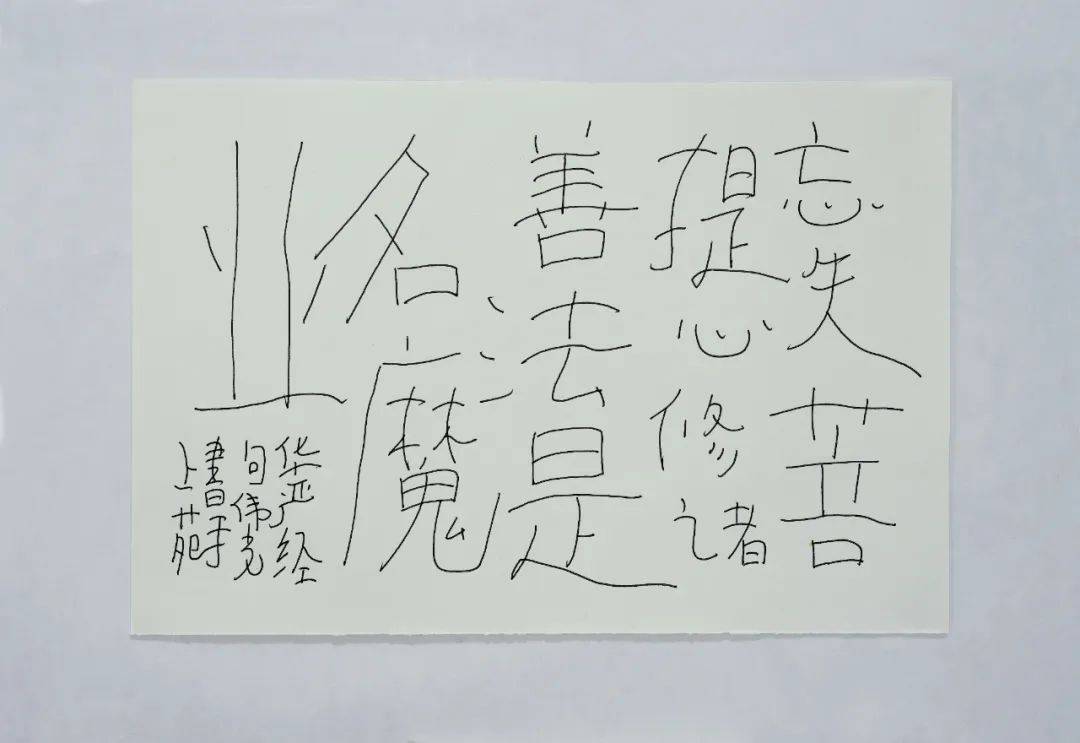 忘失菩
提心修诸
善法是
名魔
业
华严经
句伟光
書于
上苑